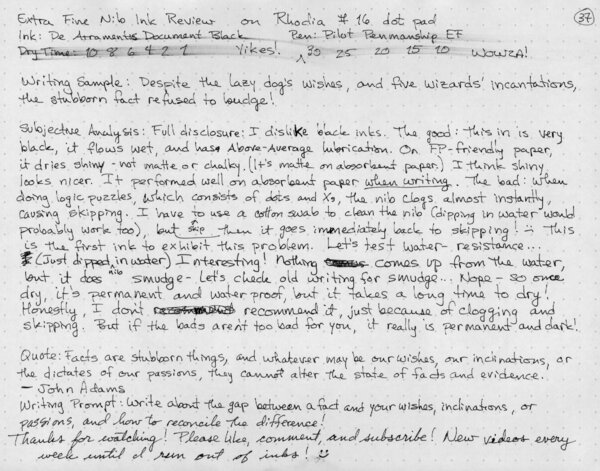 Extra Fine Nib Ink Review on Rhodia #16 dot pad 37
Ink: De Atramentis Document Black Pen: Pilot Penmanship EF
Dry Time: 10 8 6 4 2 1 Yikes! 30 25 20 15 10 WOWZA!
Writing Sample: Despite the lazy dog's wishes, and five wizards' incantations,
the stubborn fact refused to budge!
Subjective Analysis: Full disclosure: I dislike black inks. The good: This in is very
black, it flows wet, and has Above-Average lubrication. On FP-friendly paper,
it dries shiny - not matte or chalky. (It's matte on absorbent paper.) I think shiny
looks nicer. It performed well on absorbent paper when writing. The bad: When
doing logic puzzles, which consists of dots and Xs, the nib clogs almost instantly,
causing skipping. I have to use a cotton swab to clean the nib (dipping in water would
probably work too), but skip then it goes immediately back to skipping! :( This
is the first ink to exhibit this problem. Let's test water-resistance...
(Just dipped in water) Interesting! Nothing comes up from the water,
but it does nib smudge - Let's check old writing for smudge... Nope - so once
dry, it's permanent and waterproof, but it takes a long time to dry!
Honestly, I don't recommend it, just because of clogging and
skipping. But if the bads aren't too bad for you, it really is permanent and dark!
Quote: Facts are stubborn things, and whatever may be our wishes, our inclinations, or
the dictates of our passions, they cannot alter the state of facts and evidence.
- John Adams
Writing Prompt: Write about the gap between a fact and your wishes, inclinations, or
passions, and how to reconcile the difference!
Thanks for watching! Please like, comment, and subscribe! New videos every
week until I run out of inks! :)